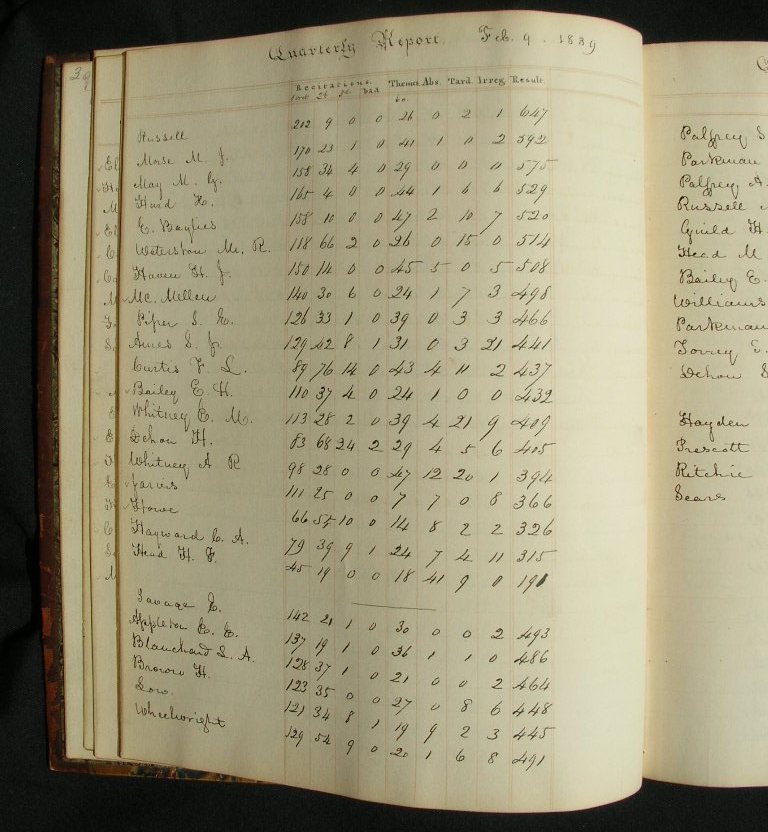 Quarterly Report. Feb. 9. 1839
Recitations. Themes Abs. Tard. Irreg. Result.
bad
60.
Russell 212 9 0 0 26 0 2 1 647
Morse M. J. 170 23 1 0 41 1 0 2 592
May M. G. 158 34 4 0 29 0 0 0 575
Hurd H. 165 4 0 0 44 1 6 6 529
E. Baylies 158 10 0 0 47 2 10 7 520
Waterston M. R. 118 66 2 0 26 0 15 0 514
Haven H. J. 150 14 0 0 45 5 0 5 508
Mc. Millen 140 30 6 0 24 1 7 3 498
Piper S. 126 33 1 0 39 0 3 3 466
Ames S. J. 129 42 8 1 31 0 3 21 441
Curtis F. L. 89 76 14 0 43 4 11 2 437
Bailey E. H. 110 37 4 0 24 1 0 0 432
Whitney C. M. 113 28 2 0 39 4 21 9 409
Dehon H. 83 68 24 2 29 4 5 6 405
Whitney A R 98 28 0 0 47 12 20 1 394
Jarvis 111 25 0 0 7 7 0 8 366
Howe 66 55 10 0 14 8 2 2 326
Hayward C. A. 79 39 9 1 24 7 4 11 315
Head H. F. 45 19 0 0 18 41 9 0 191
Savage E. 142 21 1 0 30 0 0 2 493
Appleton C. E. 137 19 1 0 36 1 1 0 486
Blanchard L. A. 128 37 1 0 21 0 0 2 464
Brown H. 123 35 0 0 27 0 8 6 448
Low. 121 34 8 1 19 9 2 3 445
Wheelwright 129 54 9 0 20 1 6 8 491
Palfrey S
Parkman
Palfrey A.
Russell
Guild H.
Head M
Bailey E.
Williams
Parkman
Torrey E.
Dehon S
Hayden
Prescott
Ritchie
Sears